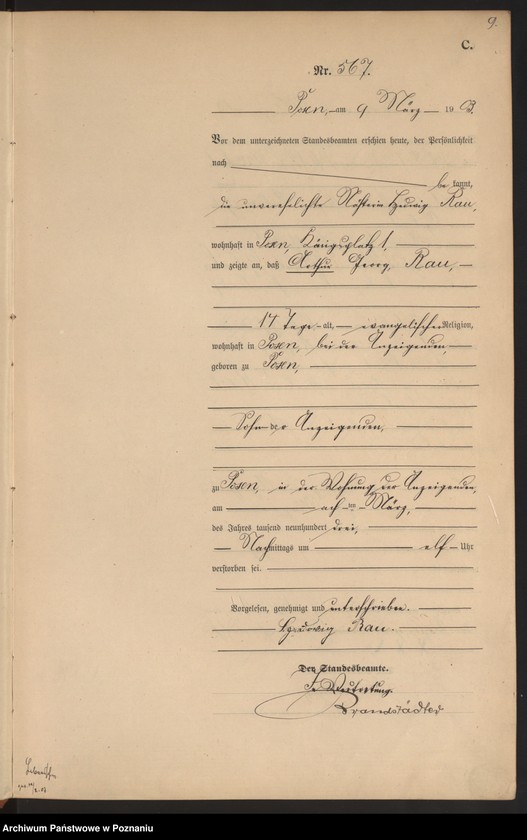 9.
C.
Nr. 567.
Posen, am 9 März 1903.
Vor dem unterzeichneten Standesbeamten erschien heute, der Persönlichkeit
nach
be kannt,
die unverehelichte Nähterin Hedwig Rau,
wohnhaft in Posen, Königsplatz 1,
und zeigte an, daß Arthur Georg Rau,
14 Tage alt, evangelischer Religion,
wohnhaft in Posen, bei der Anzeigenden,
geboren zu Posen,
Sohn der Anzeigenden,
zu Posen, in der Wohnung der Anzeigenden,
am achten März,
des Jahres tausend neunhundert drei,
Nachmittags um elf Uhr
verstorben sei.
Vorgelesen, genehmigt und unterschrieben.
Hedwig Rau.
Der Standesbeamte.
In Vertretung.
Brandstädter
Archiwum Państwowe w Poznaniu